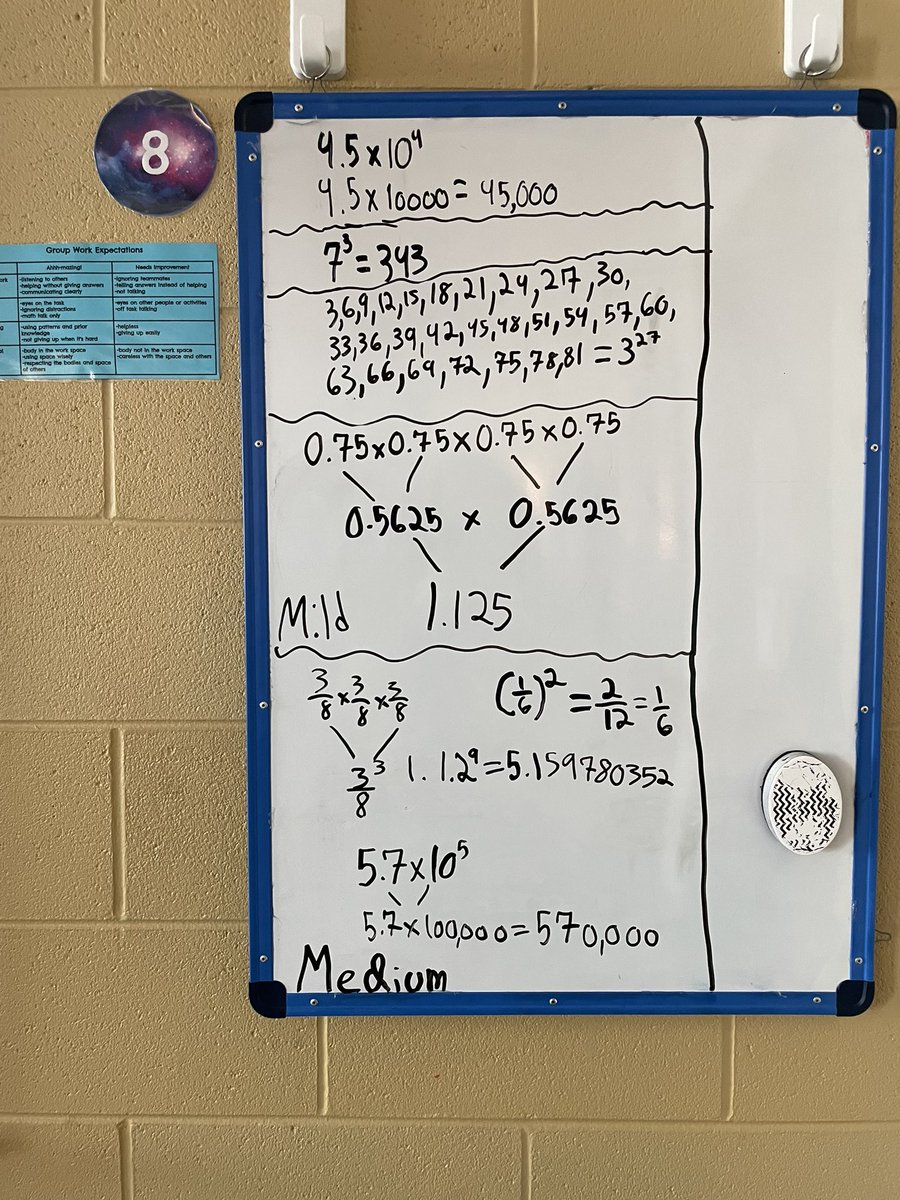 8
Group Work Expectations
Ahhh-mazing!
Needs Improvement
-listening to others
-helping without giving answers
-communicating clearly
-ignoring teammates
-telling answers instead of helping
-not talking
-eyes on the task
-ignoring distractions
-math talk only
-eyes on other people or activities
-off task talking
-using patterns and prior
knowledge
-not giving up when it's hard
-helpless
-giving up easily
-body in the work space
-using space wisely
-respecting the bodies and space
of others
-body not in the work space
-careless with the space and others
4.5×10⁴
4.5×10000=45,000
7³=343
3,6,9,12,15,18,21,24,27,30,
33,36,39,42,45,48,51,54,57,60,
63,66,69,72,75,78,81=3²⁷
0.75×0.75×0.75×0.75
0.5625 × 0.5625
1.125
Mild
3/8×3/8×3/8
(1/6)²=2/12=1/6
3³/8
1.1.2⁹=5.159780352
5.7×10⁵
5.7×100,000=570,000
Medium